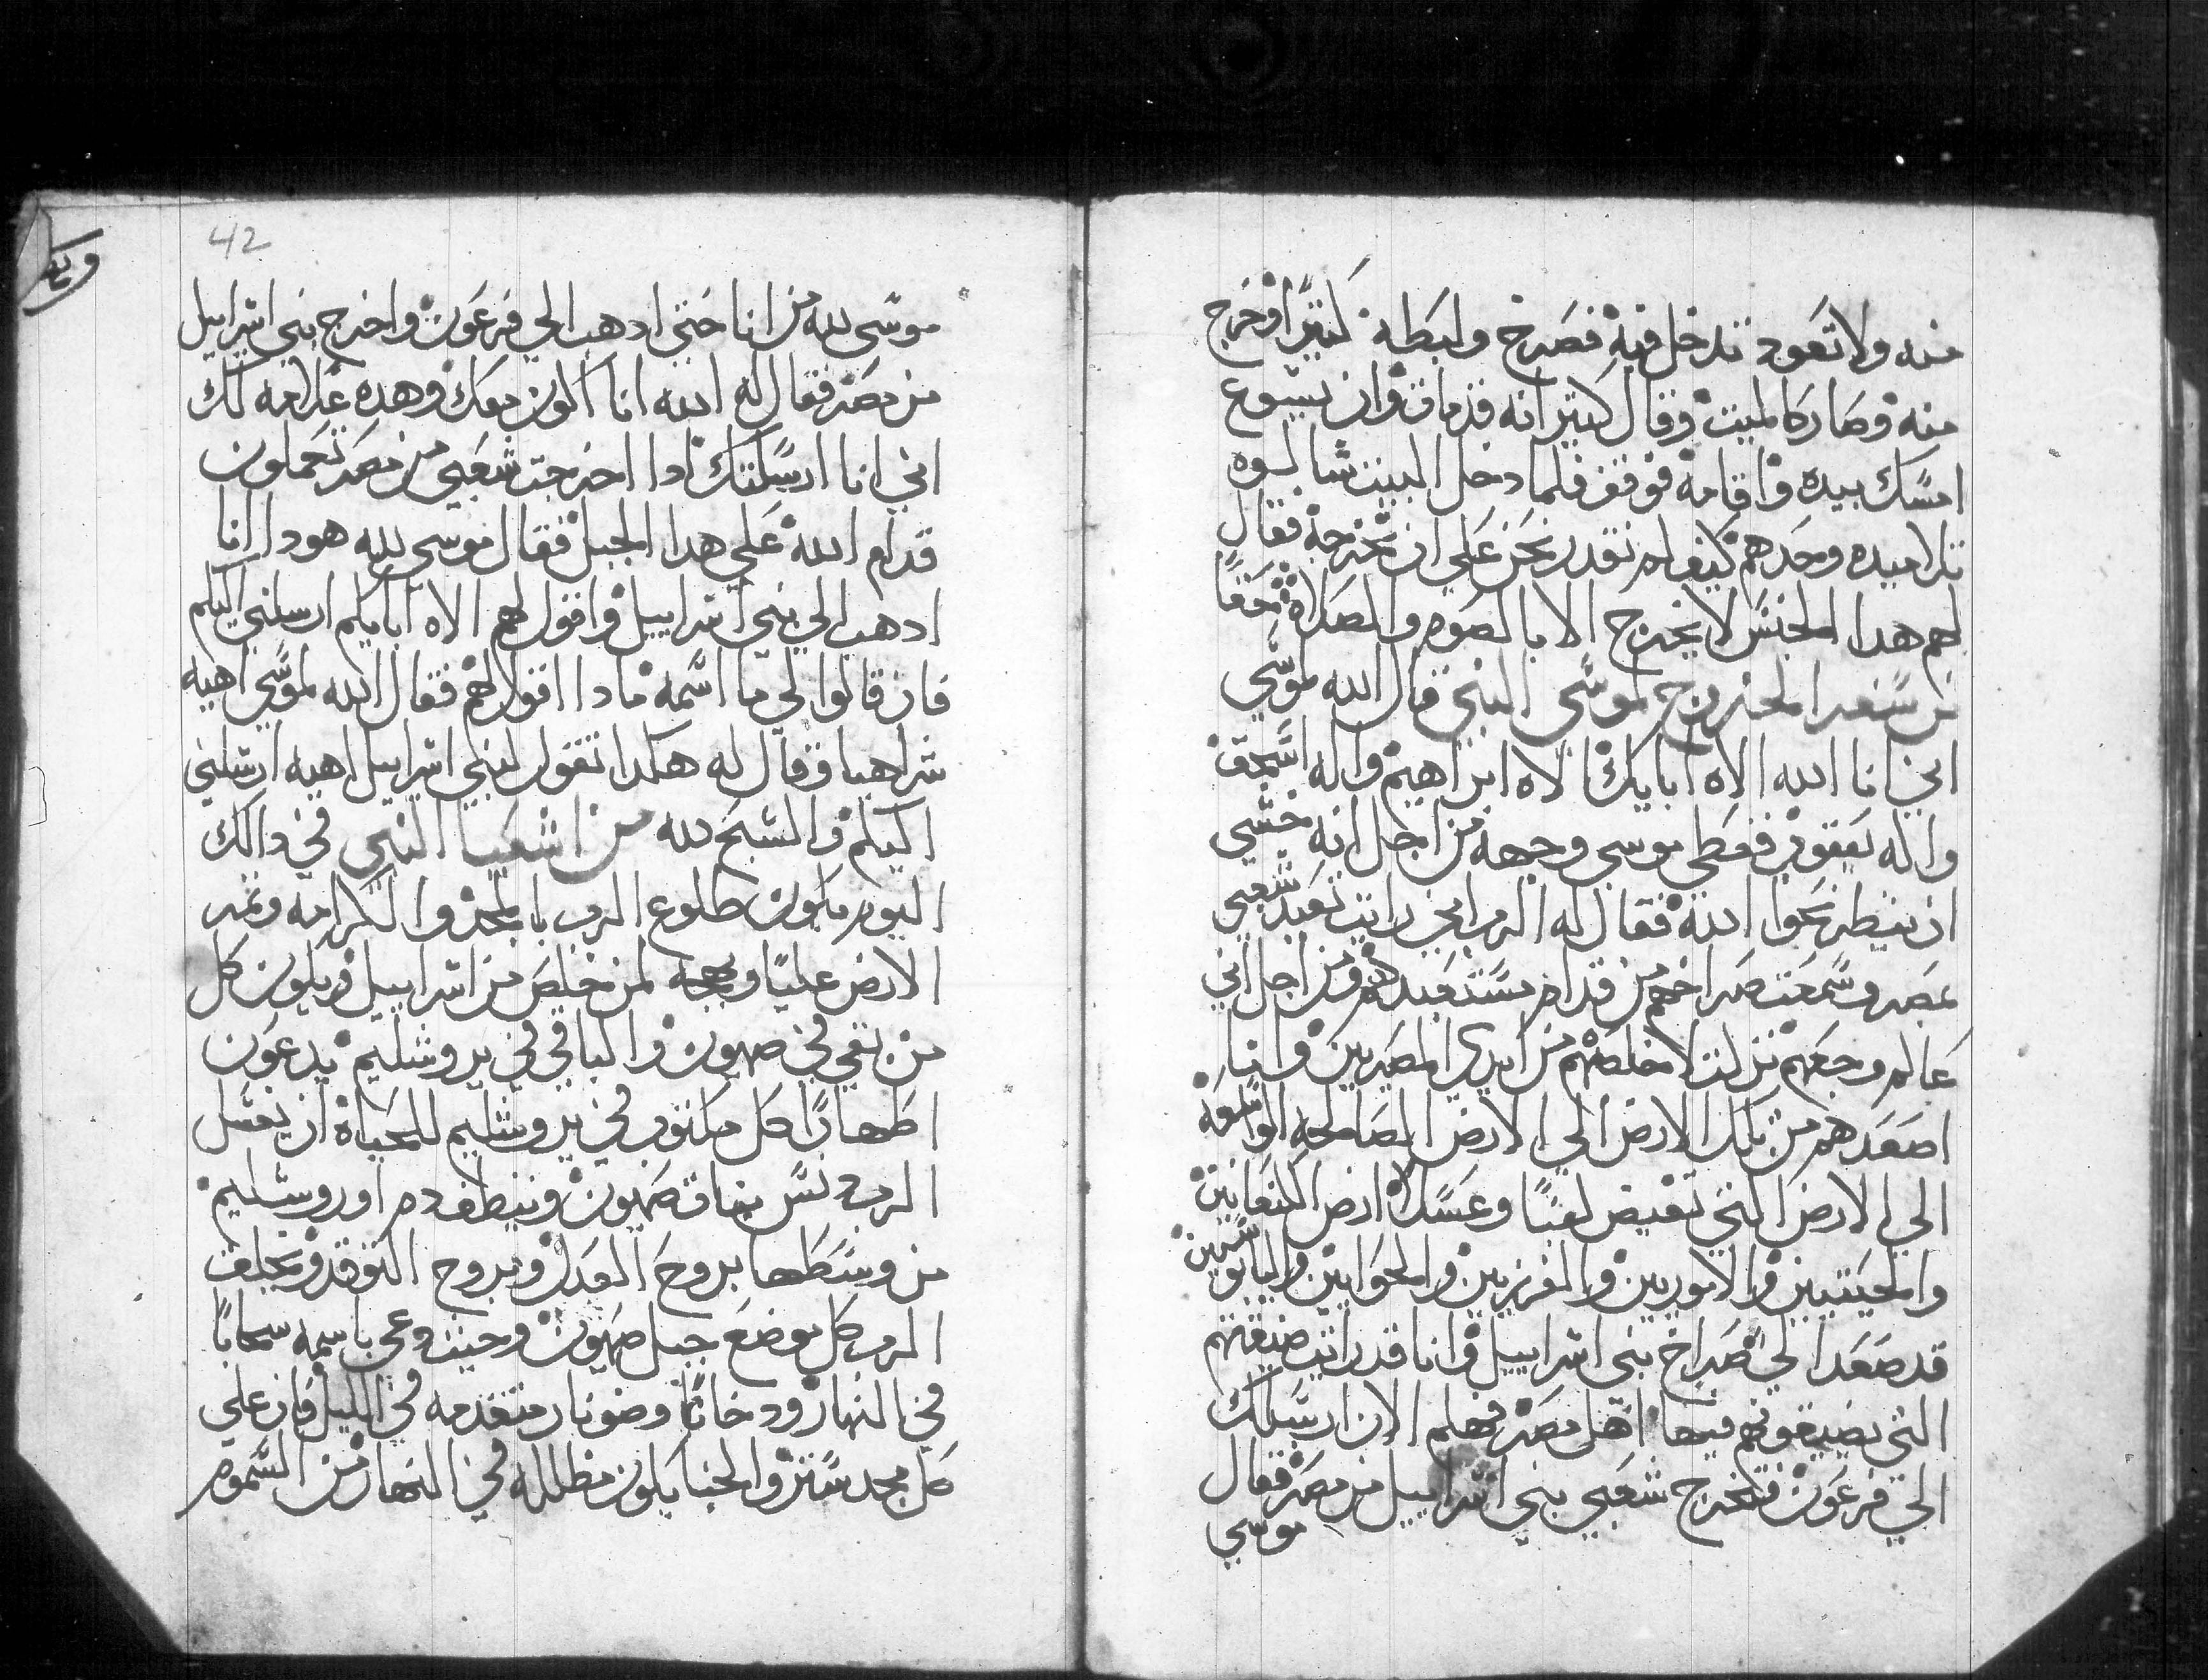 منه ولا تعود تدخل فيه فصرخ ولبطه كثيرا وخرج
منه وصار كالميت وقال كثير انه قد مات وان يسوع
امسك بيده واقامه فوقف فلما دخل البيت سالوه
تلاميده وحدهم كيف لم نقدر نحن علي ان نخرجه فقال
لهم هدا الجنس لا يخرج الا بالصوم والصلاة حقا
من سفر الخروج لموسي النبي قال الله لموسي
اني انا الله الاه ابايك الاه ابراهيم واله اسحق
واله يعقوب فغطي موسي وجهه من اجل انه خشي
ان ينظر نحوا الله فقال له الرب اني رايت تعبد شعبي
بمصر وسمعت صراخهم من قدام مستعبديهم ومن اجل اني
عالم وجعهم نزلت لاخلصهم من ايدي المصريين وانا
اصعدهم من تلك الارض الي الارض الصالحه الواسعه
الي الارض التي تفيض لبنا وعسلا ارض الكنعانيين
والحيتيين والاموريين والفرزيين والحوايين واليابوسيين
قد صعد الي صراخ بني اسراييل وانا قد رايت ضيقتهم
التي يضيقونهم فيها اهل مصر فهلم الان ارسلك
الي فرعون فتخرج شعبي بني اسراييل من مصر فقال
موسي
42
موسي لله من انا حتي ادهب الي فرعون واخرج بني اسراييل
من مصر فقال له الله انا اكون معك وهده علامه لك
اني انا ارسلتك ادا اخرجت شعبي من مصر تحملون
قدام الله علي هدا الجبل فقال موسي لله هودا انا
ادهب الي بني اسراييل واقول لهم الاه ابايكم ارسلني اليكم
فان قالوا لي ما اسمه مادا اقول لهم فقال الله لموسي اهيه
شراهيا وقال له هكدا تقول لبني اسراييل اهيه ارسلني
اليكم والسبح لله من اشعيا النبي في دالك
اليوم يكون طلوع الرب بالمجد والكرامه وثمر
الارض عليا وبهجه لمن خلص من اسراييل ويكون كل
من بقي في صهيون والباقي في يروشليم يدعون
اطهارا كل مكتوب في يروشليم للحياة ان يغسل
الرب نس بنات صهيون وينظف دم اوروشليم
من وسطها بروح العدل وبروح التوقد ويخلق
الرب كل موضع جبل صهيون وحيث دعي باسمه سحابا
في النهار ودخانا وضو نار متقدمه في الليل فان علي
كل مجد ستر والخبا يكون مظلله في النهار من السموم